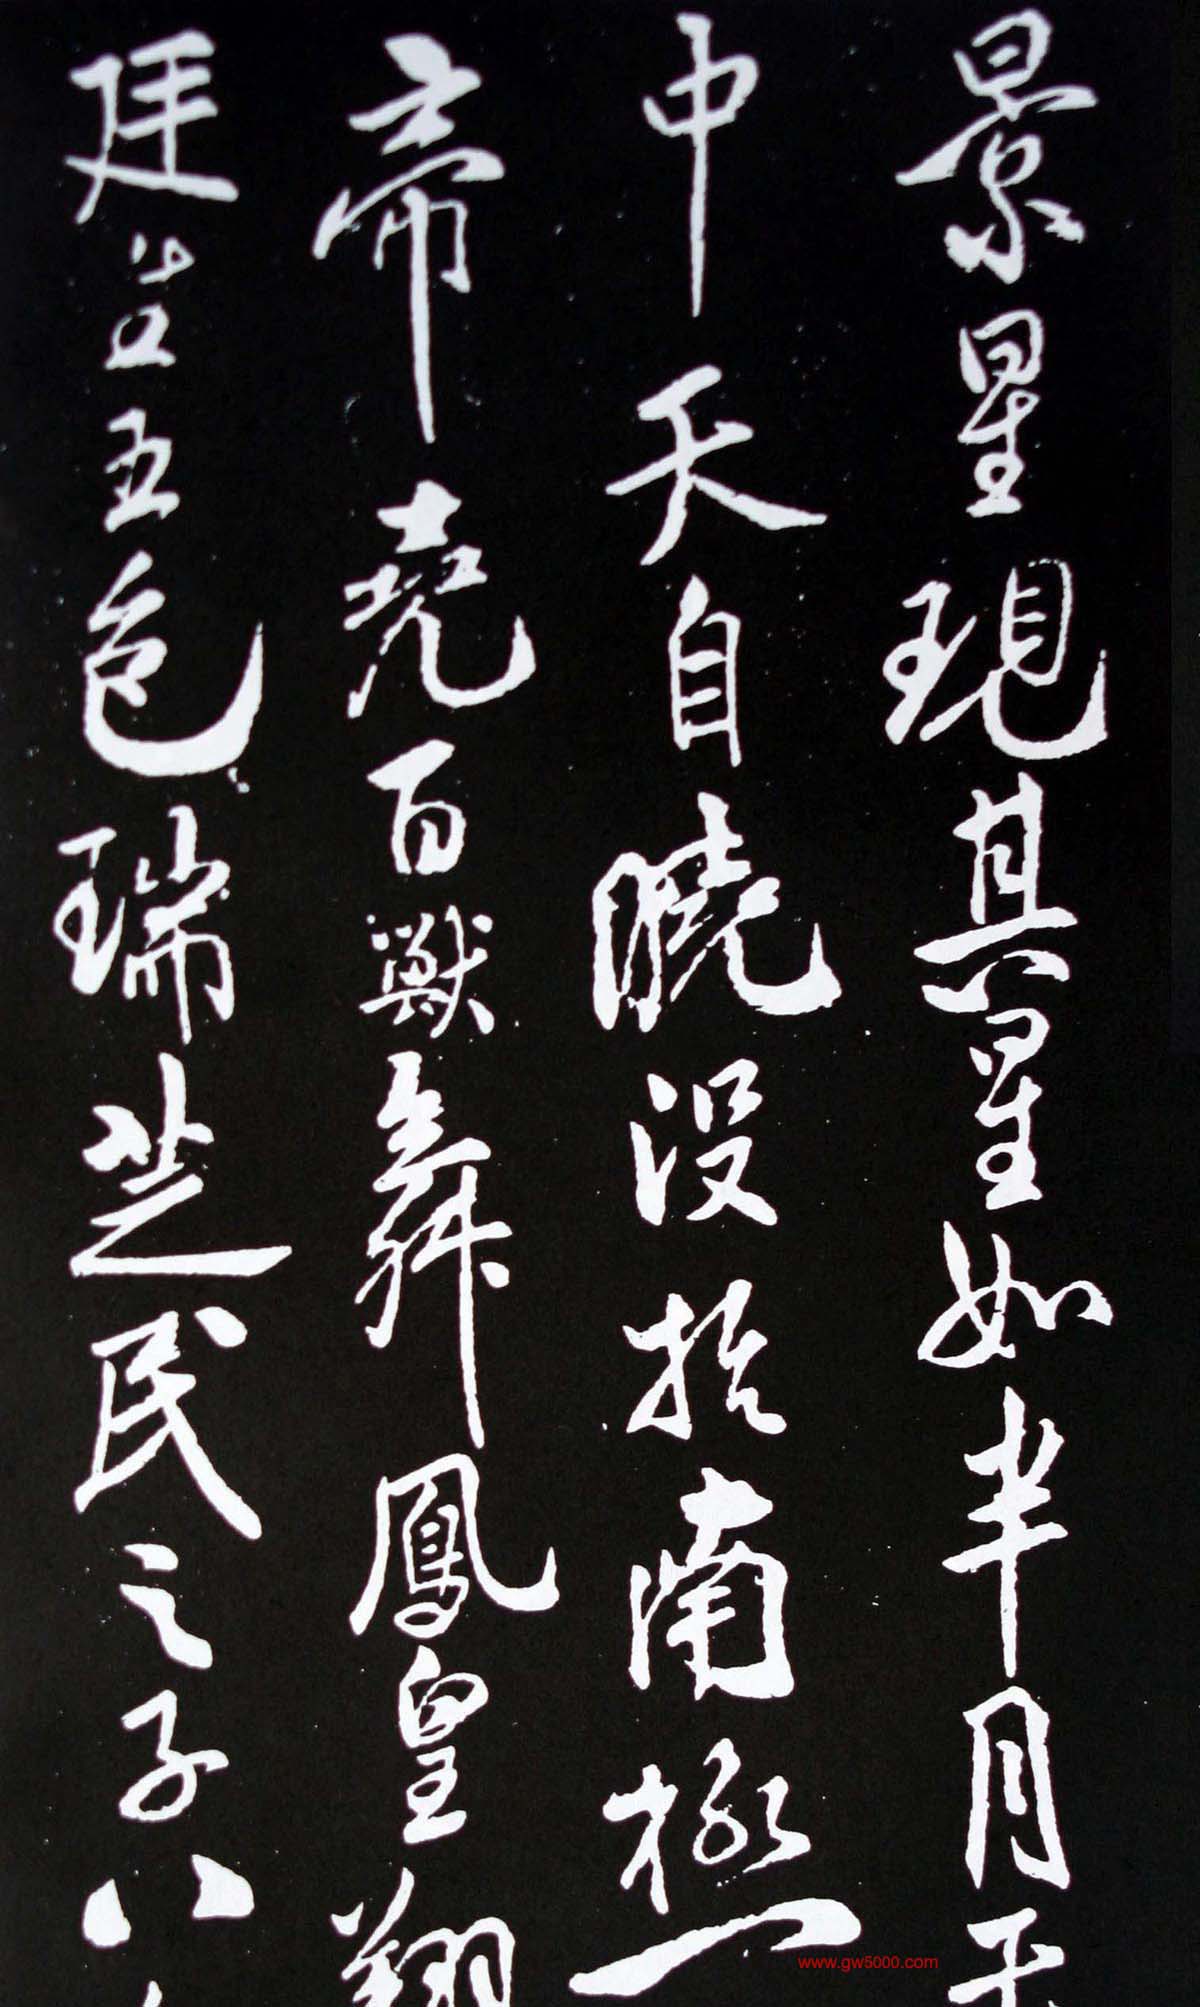 景星現其星如半月于
中天自曉没於南極一
帝堯百獸舞鳳皇翔
廷生五色瑞芝民之子八
www.gw5000.com